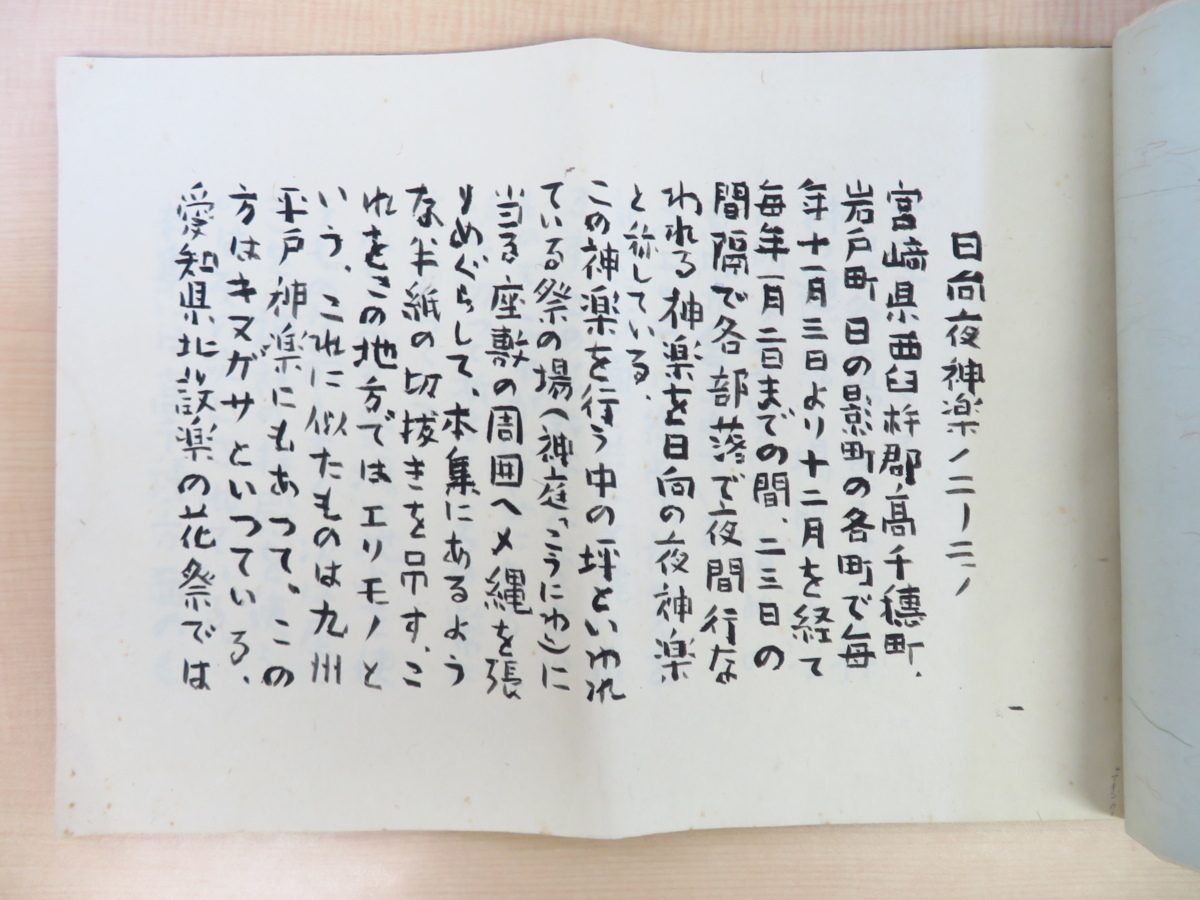 日向夜神楽ノ二ノ二ノ
宮崎県西臼杵郡高千穂町、
岩戸町 日の影町の各町で毎
年十一月三日より十二月を経て
毎年一月二日までの間、二三日の
間隔で各部落で夜間行な
われる神楽を日向の夜神楽
と称している、
この神楽を行う中の坪といわれ
ている祭の場(神庭「こうにわ」)に
当る座敷の周囲へメ縄を張
りめぐらして、本集にあるよう
な半紙の切抜きを吊す、こ
れをこの地方ではエリモノと
いう、これに似たものは九州
平戸神楽にもあつて、この
方はキヌガサといつている、
愛知県北設楽の花祭では